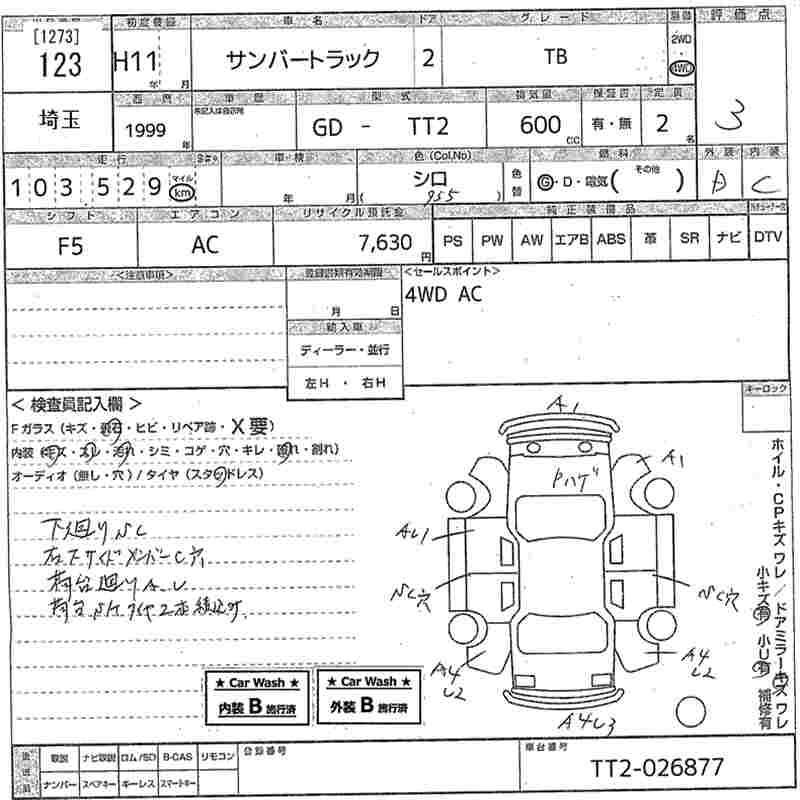 [1273]
123
初度登録
H11
年 月
車名
サンバートラック
ドア
2
グレード
TB
2WD
4WD
評価点
3
埼玉
西暦
1999
年
車歴
型式
GD - TT2
排気量
600
CC
保証書
有・無
定員
2
名
走行
103,529
マイル
km
車検
年 月
色 (Col,No)
シロ
( 955 )
色替
燃料
G・D・電気( その他 )
外装
D
内装
C
シフト
F5
エアコン
AC
リサイクル預託金
7,630
円
純正装備品
PS PW AW エアB ABS 革 SR ナビ DTV
<注意事項>
登録書類有効期限
月 日
輸入車
ディーラー・並行
左H ・ 右H
<セールスポイント>
4WD AC
キーロック
< 検査員記入欄 >
Fガラス (キズ・飛石・ヒビ・リペア跡・X要)
内装 (キズ・スレ・汚れ・シミ・コゲ・穴・キレ・割れ)
オーディオ (無し・穴) / タイヤ (スタッドレス)
下廻りSC
荷台廻りAU
A1
A1
Pハゲ
AU1
SC穴
SC穴
A4
U2
A4
U2
A4U3
ホイル・CPキズワレ / ドアミラーキズワレ
小キズ有 小U有 補修有
★ Car Wash ★
内装 B 施行済
★ Car Wash ★
外装 B 施行済
後送品
取説 ナビ取説 ロム/SD B-CAS リモコン
ナンバー スペアキー キーレス スマートキー
登録番号
車台番号
TT2-026877